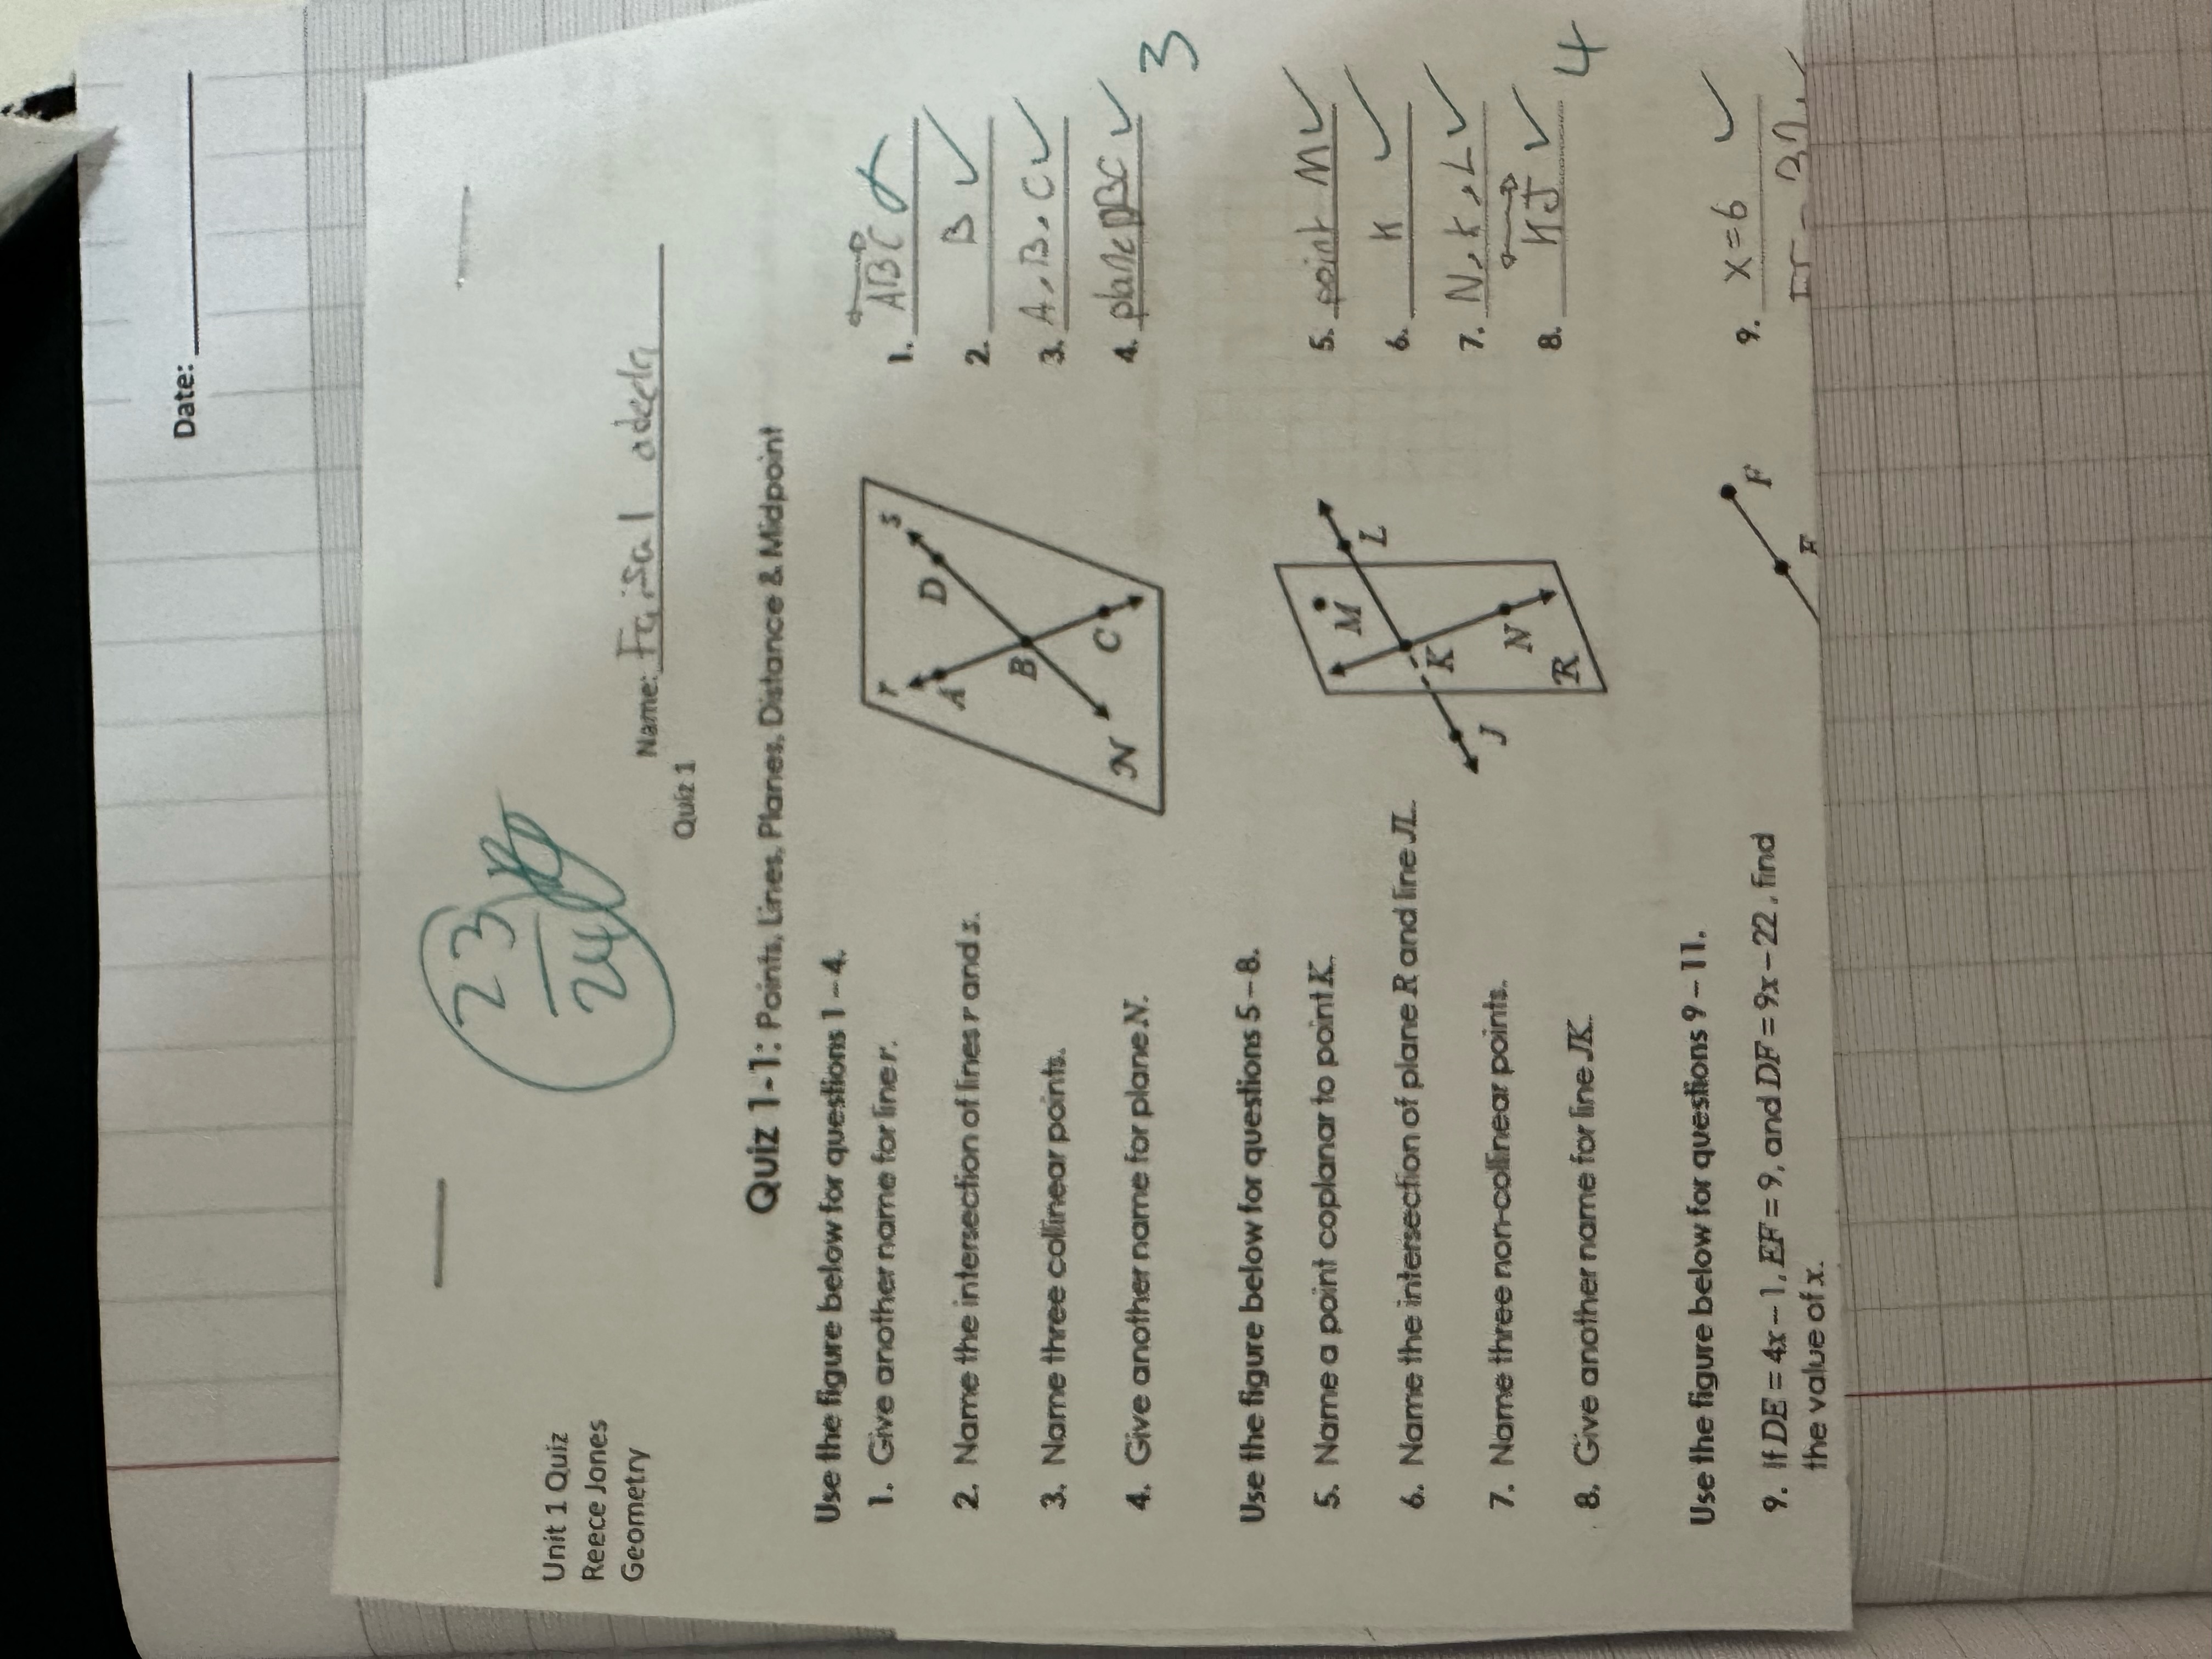 Date:
23
24
Unit 1 Quiz
Reece Jones
Geometry
Name: Faisal
Quiz 1
Quiz 1-1: Points, Lines, Planes, Distance & Midpoint
Use the figure below for questions 1 – 4.
1. Give another name for line r.
2. Name the intersection of lines r and s.
3. Name three collinear points.
4. Give another name for plane N.
r
s
A
D
B
N
C
1. ABC
2. B
3. A, B, C
4. plane DBC
3
Use the figure below for questions 5 – 8.
5. Name a point coplanar to point K.
6. Name the intersection of plane R and line JL.
7. Name three non-collinear points.
8. Give another name for line JK.
M
L
K
J
N
R
5. point M
6. K
7. N, K, L
8. KJ
4
Use the figure below for questions 9 – 11.
9. If DE = 4x – 1, EF = 9, and DF = 9x – 22, find
the value of x.
F
E
9. x=6